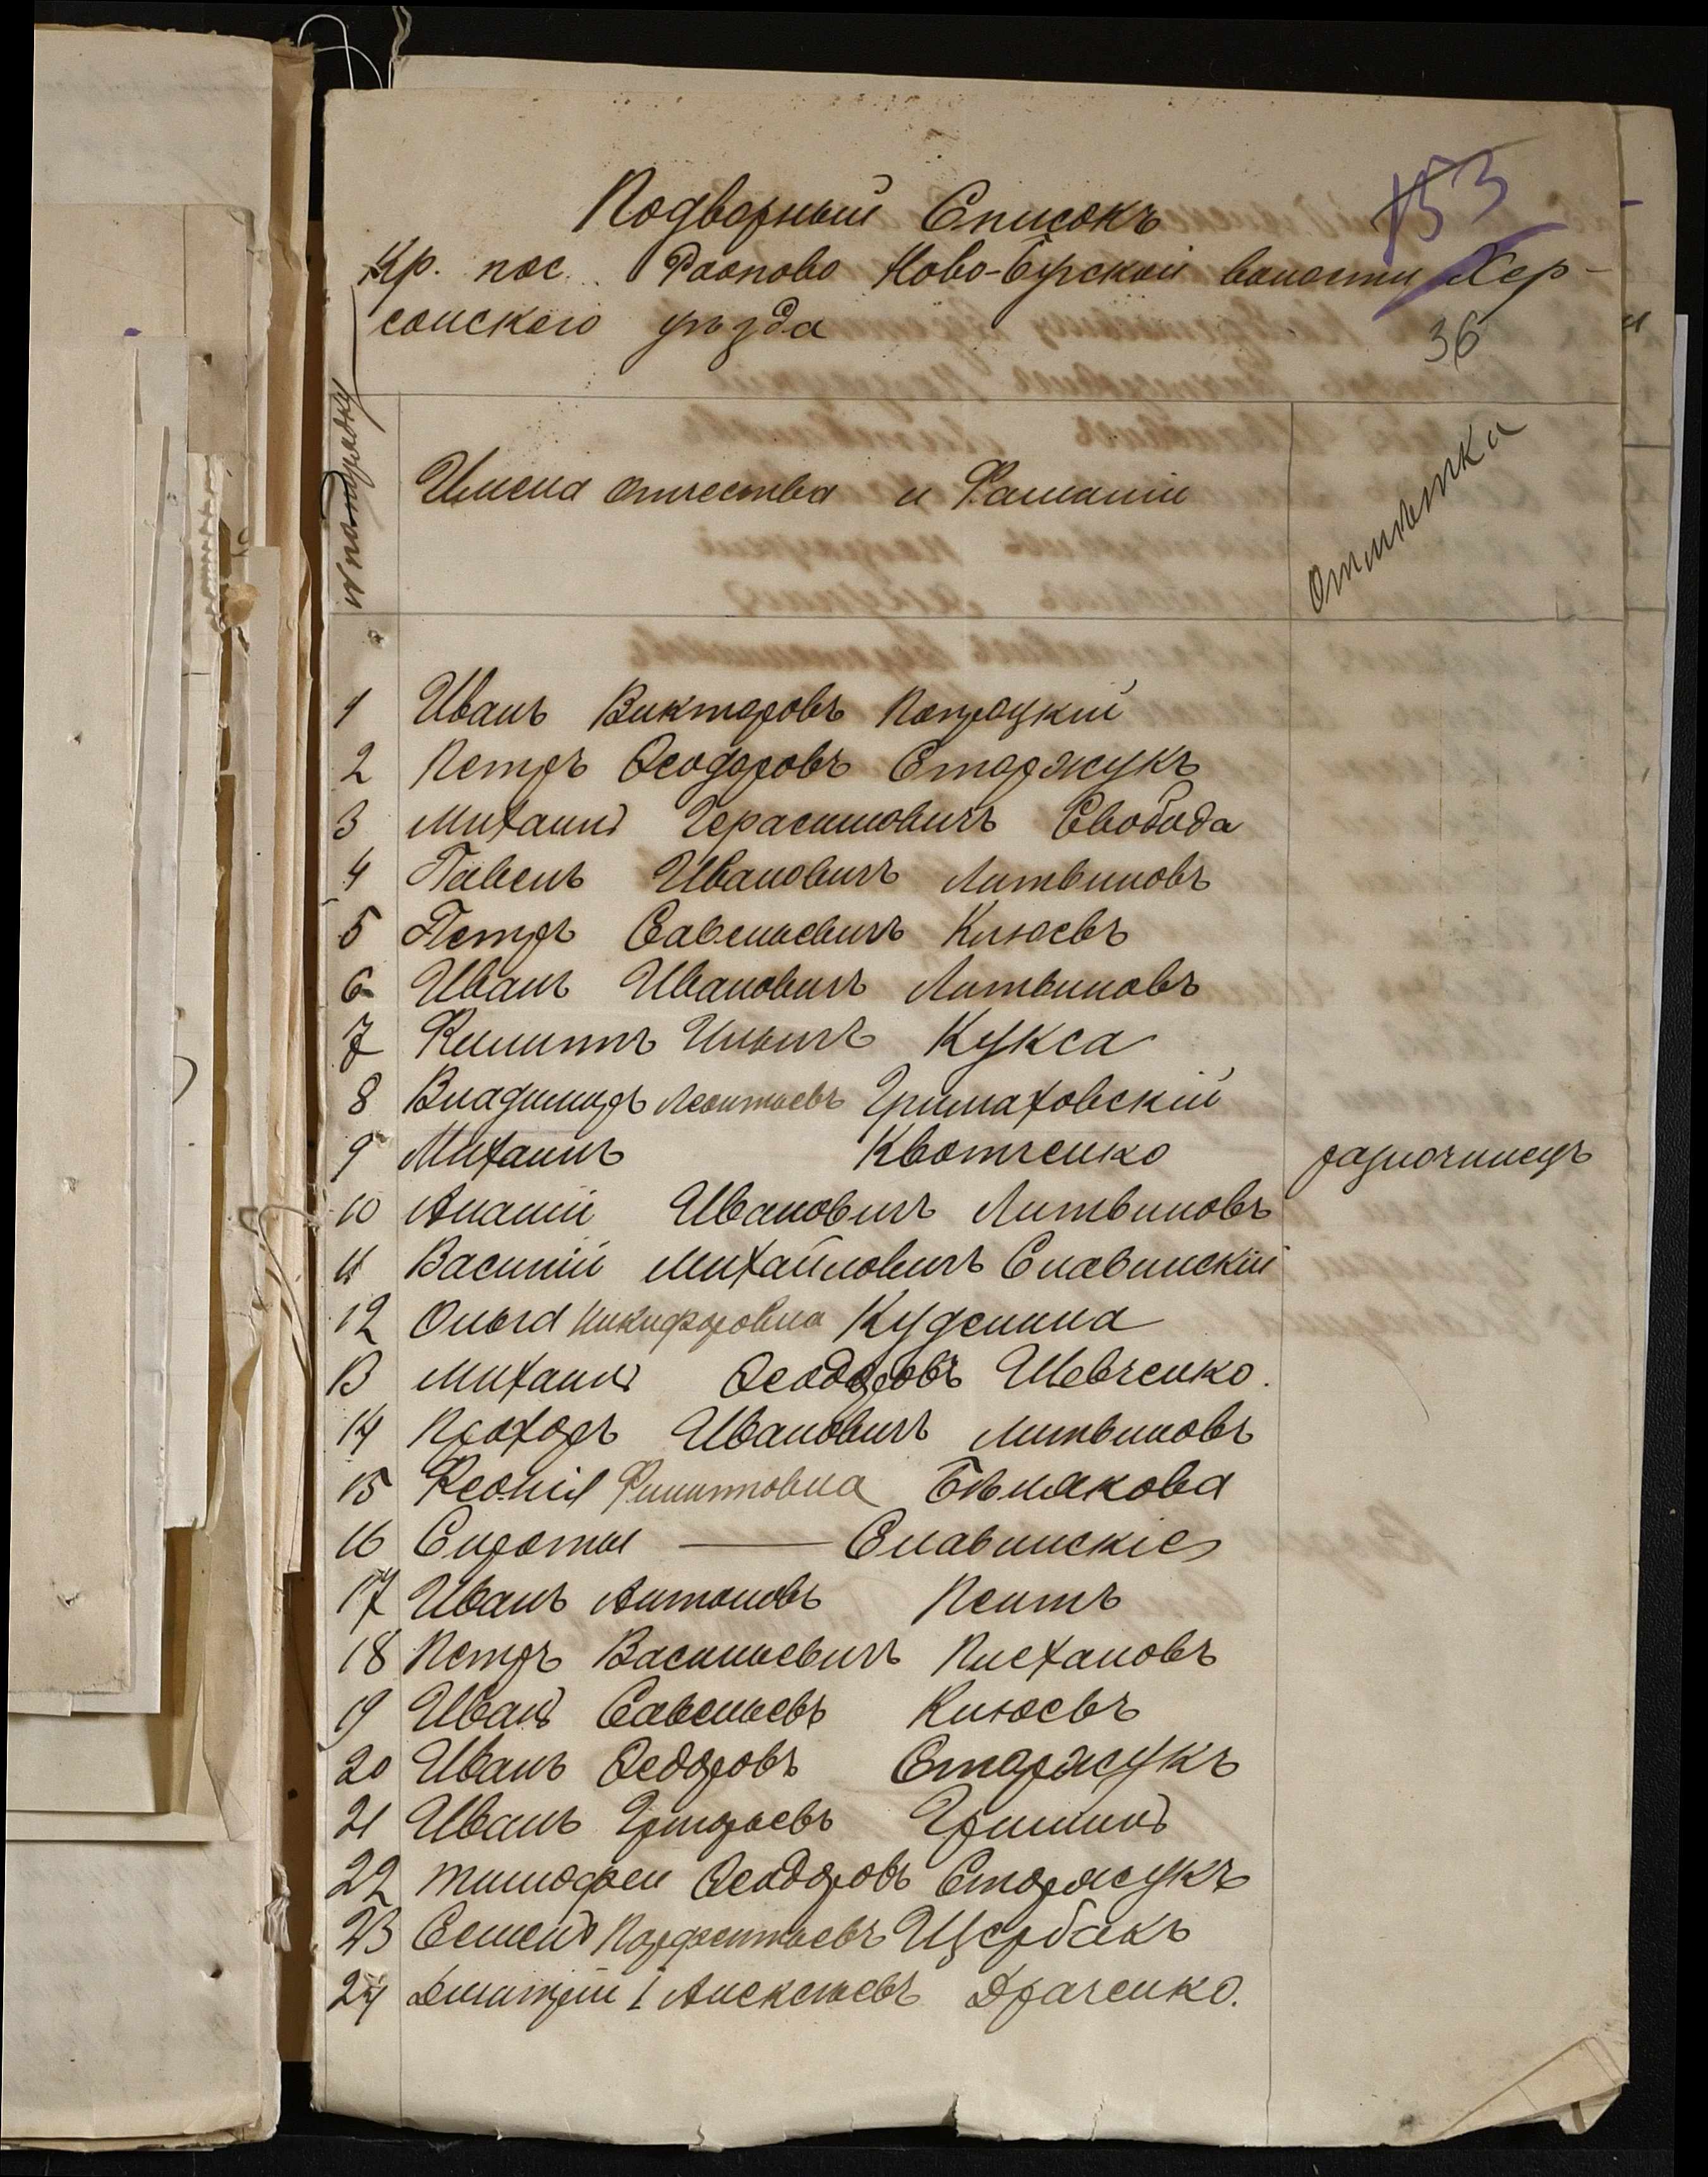 153
Подворный Списокъ
Кр. пос. Раоново Ново-Бургской волости Хер-
сонскаго уѣзда
36
№ по порядку
Имена отчества и Фамиліи
Отмѣтка
1 Иванъ Викторовъ Патрацкій
2 Петръ Ѳеодоровъ Сторжукъ
3 Михаилъ Герасимовичъ Свобода
4 Павелъ Ивановичъ Литвиновъ
5 Петръ Савельевичъ Клюевъ
6 Иванъ Ивановичъ Литвиновъ
7 Филиппъ Ильичъ Кукса
8 Владимиръ Леонтьевъ Гримаховскій
9 Михаилъ Квотченко разночинецъ
10 Ананій Ивановичъ Литвиновъ
11 Василій Михайловичъ Славинскій
12 Ольга Никифоровна Куделина
13 Михаилъ Ѳеодоровъ Шевченко.
14 Прохоръ Ивановичъ Литвиновъ
15 Феонія Филипповна Бѣлякова
16 Сироты — Славинскіе
17 Иванъ Антоновъ Пентъ
18 Петръ Васильевичъ Плехановъ
19 Иванъ Савельевъ Клюевъ
20 Иванъ Ѳедоровъ Сторжукъ
21 Иванъ Григорьевъ Гришинъ
22 Тимофеи Ѳеодоровъ Сторжукъ
23 Семенъ Парфентьевъ Щербакъ
24 Дмитрій I Алексѣевъ Драченко.